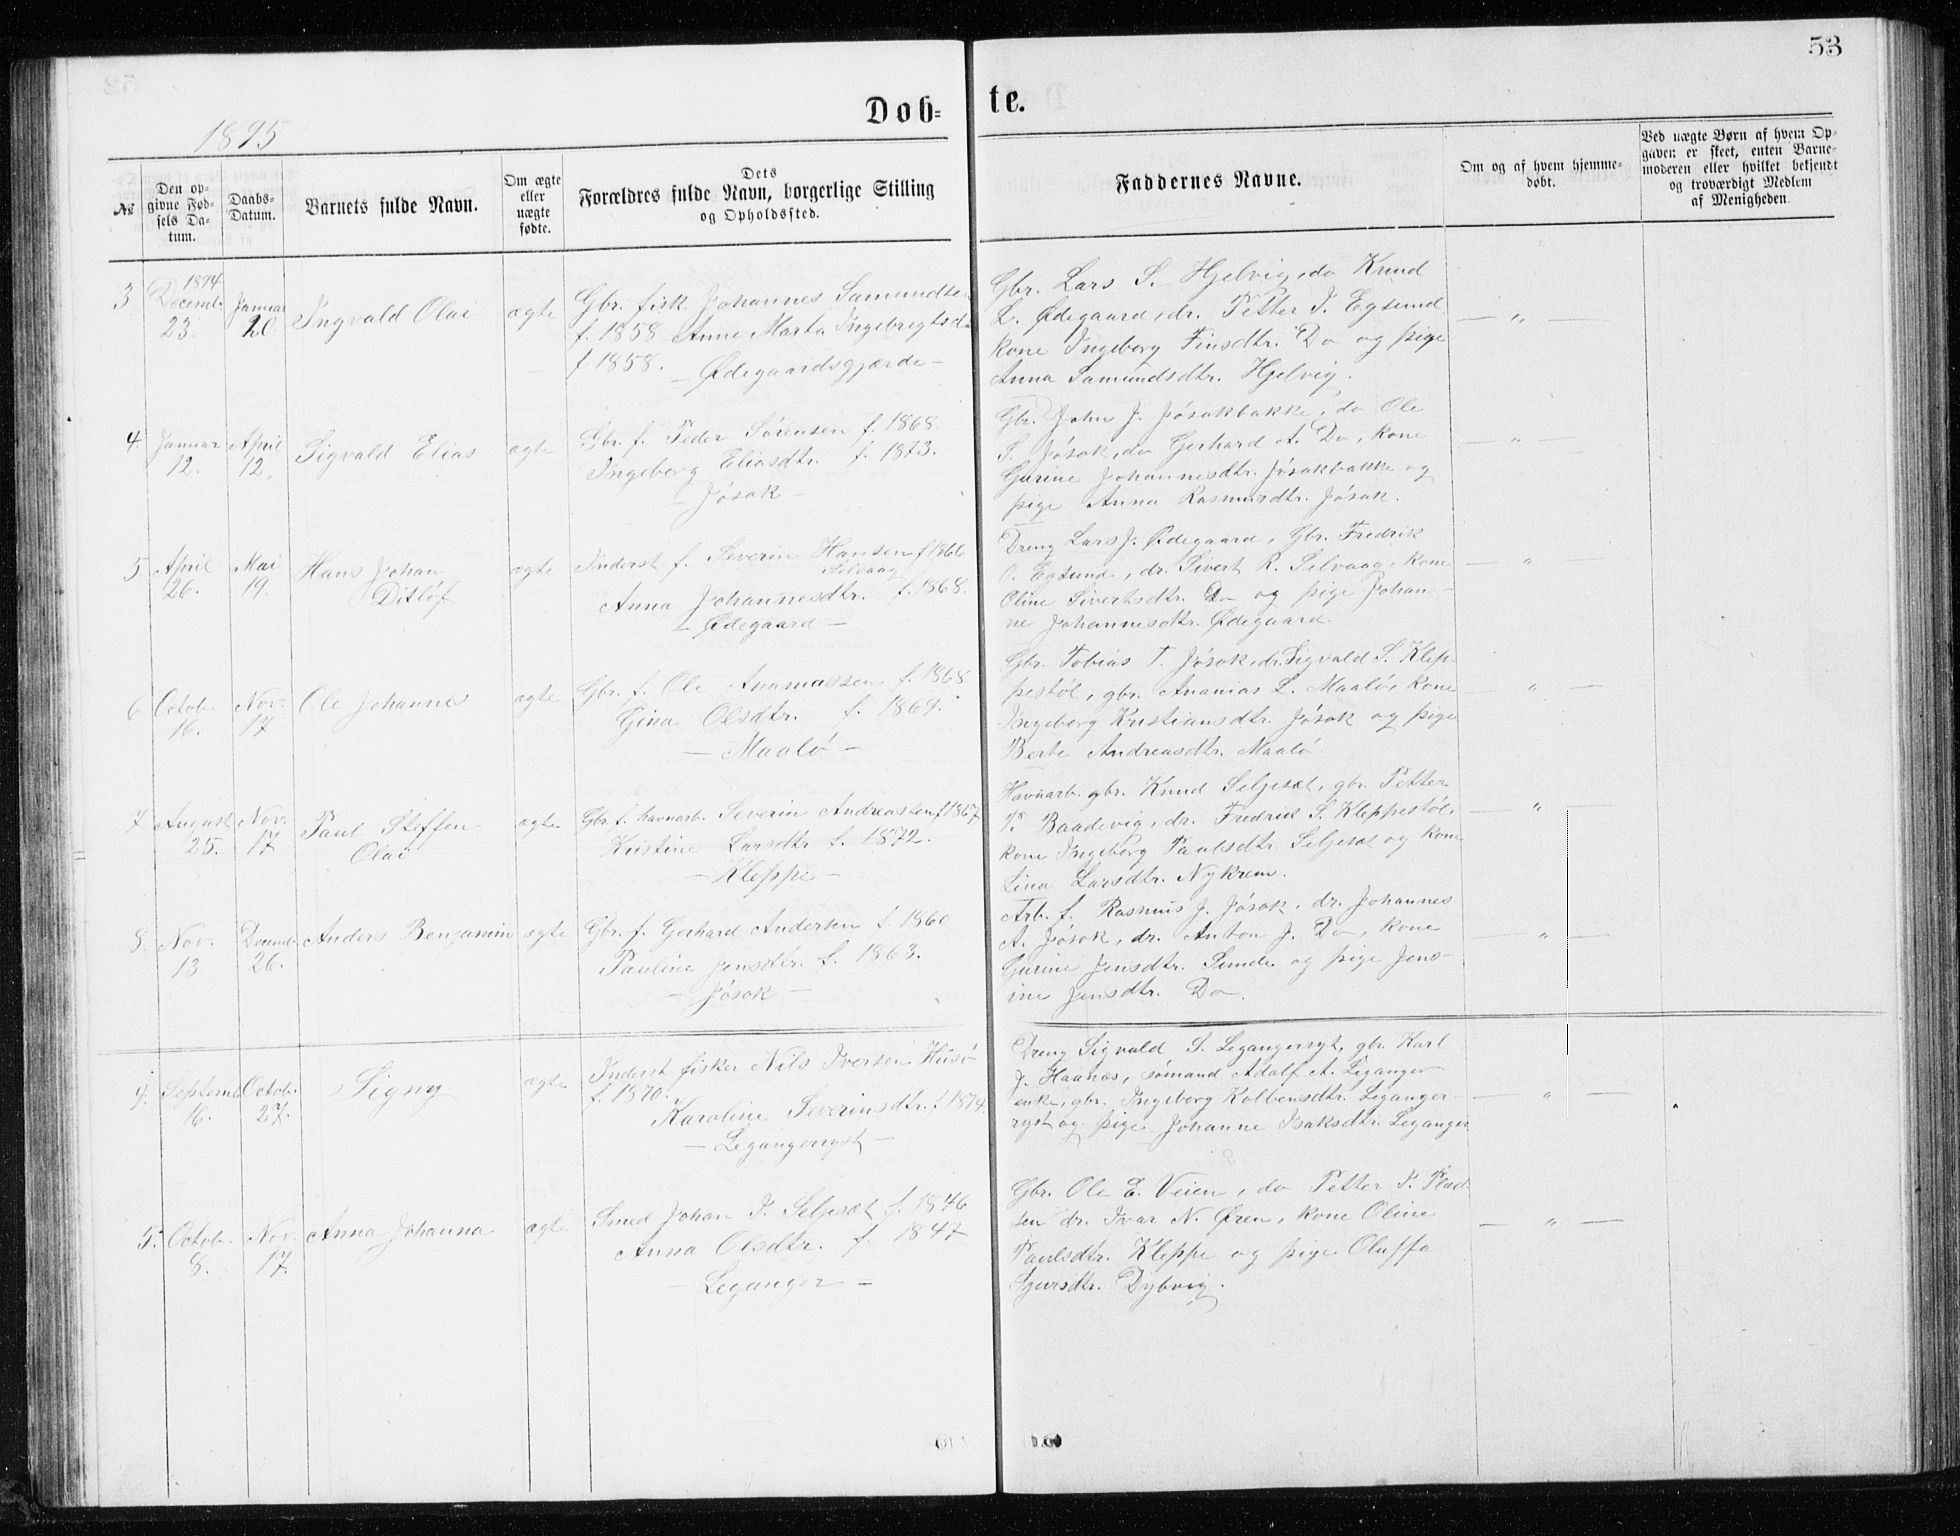 53
Døb= te.
1895
№
Den op-
givne Fød-
sels Da-
tum.
Daabs-
Datum.
Barnets fulde Navn.
Om ægte
eller
uægte
fødte.
Dets
Forældres fulde Navn, borgerlige Stilling
og Opholdssted.
Faddernes Navne.
Om og af hvem hjemme-
døbt.
Ved uægte Børn af hvem Op-
gaven er skeet, enten Barne-
moderen eller hvilket bekjendt
og troværdigt Medlem
af Menigheden.
3
1894
Decemb.
23.
Januar
20.
Ingvald Olai
ægte
Gbr. fisk. Johannes Samundse
f. 1858 Anne Marta Ingebrigtsd.
f 1858.
— Ødegaardsgjærde —
Gbr. Lars S. Hjelvig, do Knud
L. Ødegaard, dr. Petter I. Egsund
kone Ingeborg Finsdtr. Do og pige
Anna Samundsdtr. Hjelvig.
— „ —
4.
Januar
12.
April
12.
Sigvald Elias
ægte
Gbr. f. Peder Sørensen f. 1868.
Ingeborg Eliasdtr. f. 1873.
— Jøsok —
Gbr. John J. Jøsokbakke, do Ole
S. Jøsok, do Gerhard A. Do, kone
Gurine Johannesdtr. Jøsokbakke og
pige Anna Rasmusdtr. Jøsok.
— „ —
5.
April
26.
Mai
19.
Hans Johan
Ditløf
ægte
Inderst f. Severin Hansen f 1866
Selvaag
Anna Johannesdtr. f. 1868.
— Ødegaard —
Dreng Lars J. Ødegaard, Gbr. Fredrik
O. Egsund, dr. Sivert R. Selvaag, kone
Oline Sivertsdtr. Do og pige Johan-
ne Johannesdtr. Ødegaard.
— „ —
6
Octob.
16.
Nov.
17
Ole Johannes
ægte
Gbr. f. Ole Ananiassen f. 1868
Gina Olsdtr. f. 1869.
— Maalø —
Gbr. Tobias T. Jøsok, dr. Sigvald S. Klep-
pestøl, gbr. Ananias L. Maalø, kone
Ingeborg Kristiansdtr. Jøsok og pige
Berte Andreasdtr. Maalø.
— „ —
7
August
25.
Nov.
17
Paul Steffen
Olai
ægte
Gbr. f. havnarb. Severin Andreassen f 1867
Kristine Larsdtr f. 1872.
— Kleppe —
Havnarb. gbr. Knud Seljesæt, gbr. Petter
P. Baadevig, dr. Fredrik S. Kleppestøl,
kone Ingeborg Paulsdtr. Seljesæt og kone
Lina Larsdtr. Nykrem.
— „ —
8.
Nov.
13.
Decemb.
26.
Anders Benjamin
ægte
Gbr. f. Gerhard Andersen f. 1860
Pauline Jensdtr. f. 1863.
— Jøsok —
Arb. f. Rasmus J. Jøsok, dr. Johannes
A. Jøsok, dr. Anton J. Do, kone
Gurine Jensdtr. Sunde og pige Jens-
ine Jensdtr. Do.
— „ —
4.
Septemb
16.
Octob.
27.
Signy
ægte
Inderst fisker Nils Iversen Husø
f. 1870.
Karoline Severinsdtr. f 1874.
— Legangerryst —
Dreng Sigvald S. Legangerryst, gbr. Karl
J. Haanæs, sømand Adolf A. Leganger
enke, gbr. Ingeborg Kolbensdtr. Leganger-
ryst og pige Johanne Isaksdtr. Leganger
— „ —
5.
Octob.
8.
Nov.
17.
Anna Johanna
ægte
Smed Johan I. Seljesæt f. 1846
Anna Olsdtr. f. 1847
— Leganger —
Gbr. Ole E. Veien, do Petter P. Plad-
sen dr. Ivar N. Øren, kone Oline
Paulsdtr. Kleppe og pige Oluffa
Sjursdtr. Dybvig.
— „ —